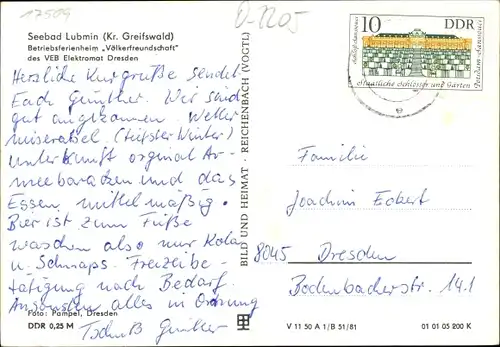 17509
D-1205
Seebad Lubmin (Kr. Greifswald)
Betriebsferienheim „Völkerfreundschaft"
des VEB Elektromat Dresden
Herzliche Kurgrüße sendet
Euch Günther. Wir sind
gut angekommen. Wetter
miserabel (tiefster Winter)
Unterkunft orginal Ar-
meebaracken und das
Essen mittelmäßig.
Bier ist zum Füße
waschen also nur Kola
u. Schnaps. Freizeitbe-
tätigung nach Bedarf.
Ansonsten alles in Ordnung
Tschüß Günther
Foto: Pampel, Dresden
DDR 0,25 M
BILD UND HEIMAT · REICHENBACH (VOGTL)
10 DDR
Staatliche Schlösser und Gärten
Familie
Joachim Eckert
8045 Dresden
Bodenbacherstr. 141
V 11 50 A 1/B 51/81
01 01 05 200 K